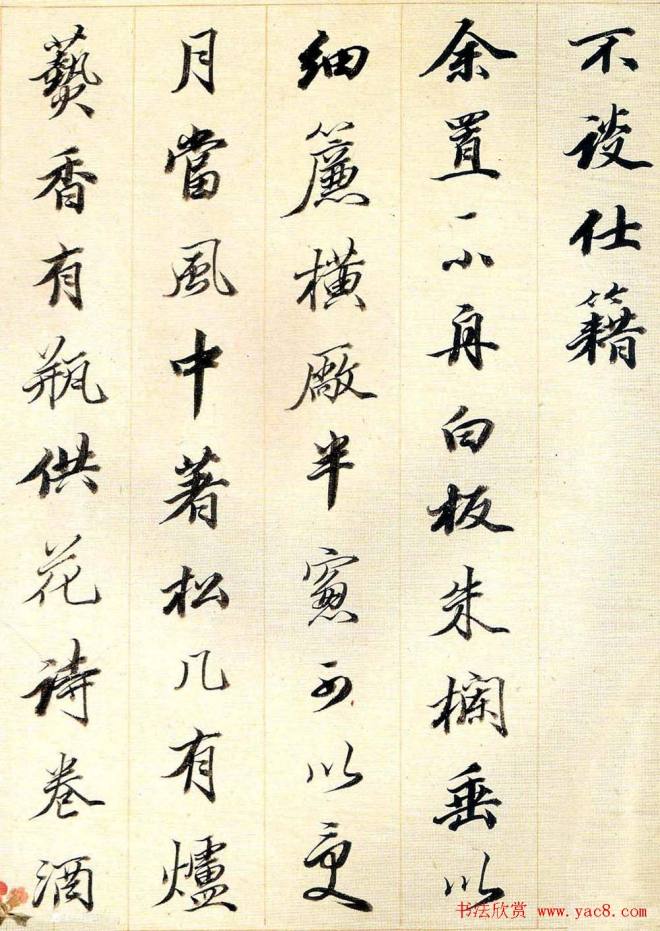 不談仕籍
余置一小舟白板朱欄垂以
細簾橫厰半窻可以受
月當風中著松几有爐
爇香有瓶供花詩卷酒
书法欣赏 www.yac8.com